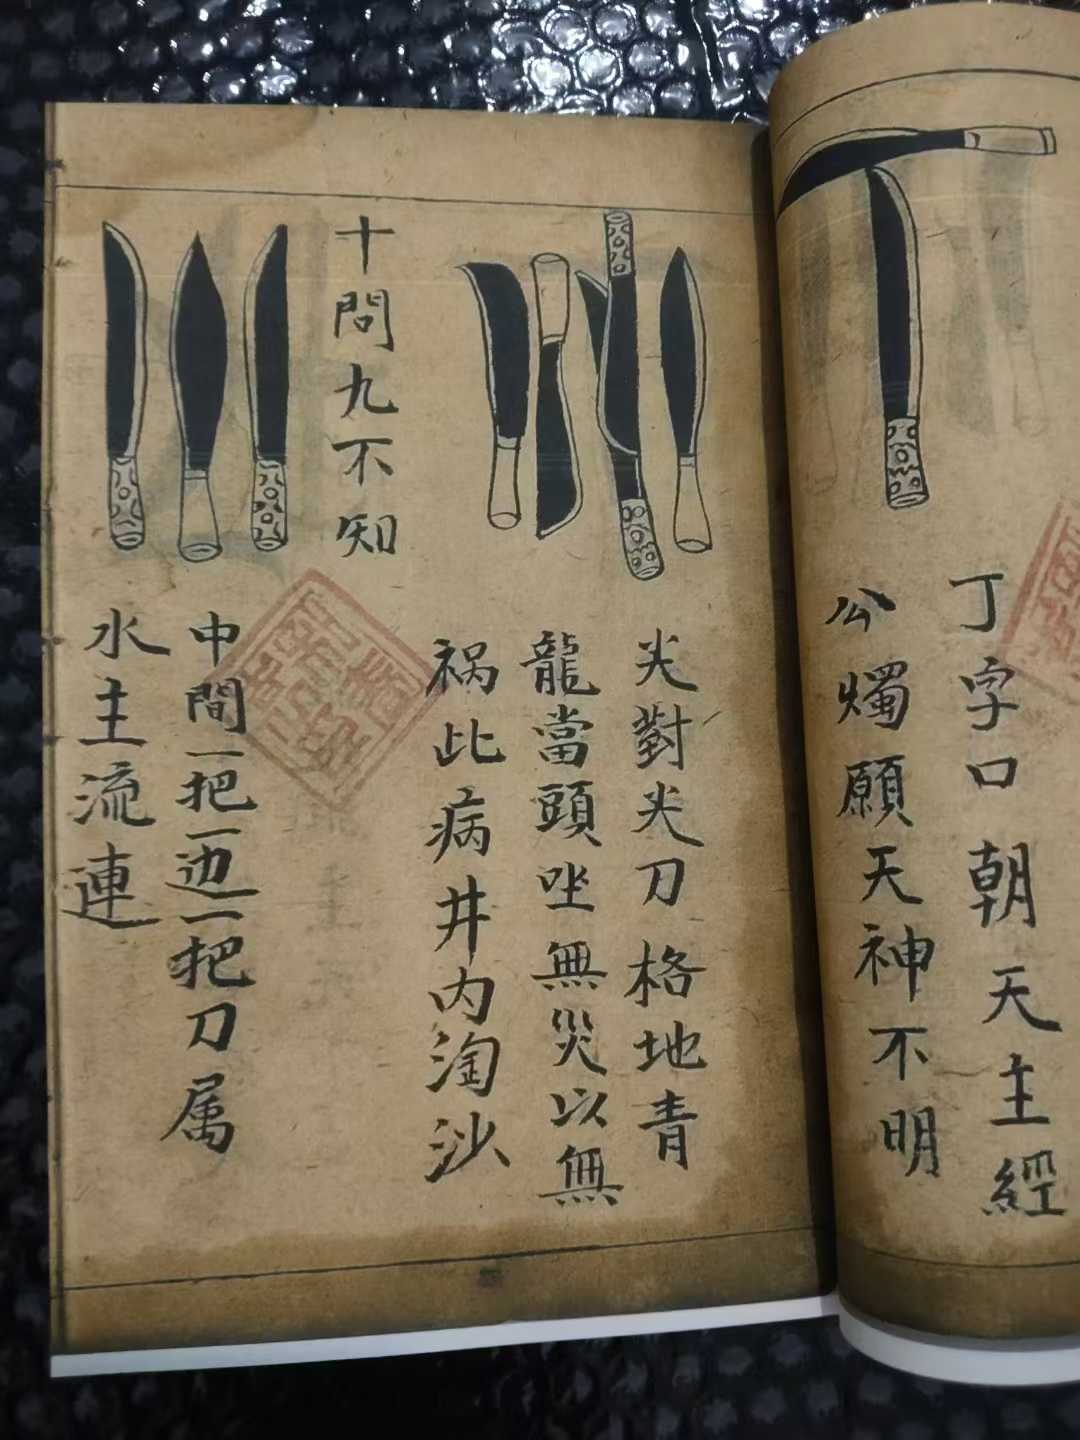 丁字口朝天主經
公燭願天神不明
尖對尖刀格地青
龍當頭坐無災以無
祸此病井内淘沙
十問九不知
中間一把一边一把刀属
水主流連